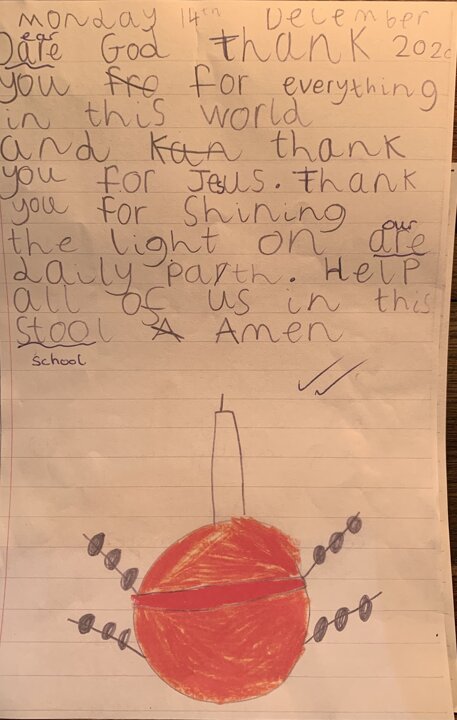 monday 14th December
ear
Dare God Thank 2020
you fro for everything
in this world
and kan thank
you for Jesus. Thank
you for Shining
our
the light on are
daily parth. Help
all of us in this
stool A Amen
school